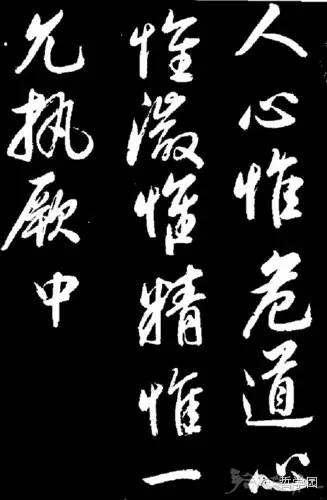 人心惟危道心
惟微惟精惟一
允执厥中
哲学园